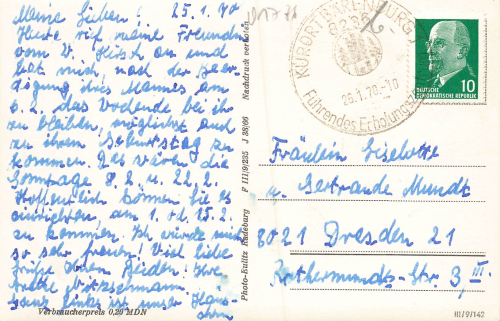 Meine Lieben! 25.1.70
Heute rief meine Freundin
vom V. Kirsch an und
bat mich, nach der Beer-
digung ihres Mannes am
6.2. das Wochende bei ihr
zu bleiben, möglichst auch
zu ihrem Geburtstag zu
kommen. Es wären die
Sonntage 8.2. u. 22.2.
Hoffentlich können Sie es
einrichten, am 1. od. 15.2.
zu kommen. Ich würde mich
so sehr freuen. Viel liebe
Grüße Ihnen Beiden! Ihre
ganz links ist unser Haus
Verbraucherpreis 0,20 MDN
Photo-Kulitz Radeburg F III/9/235 J 38/66 Nachdruck verboten
KURORT BÄRENBURG
8238
25.1.70-10
Führendes Erholungs
DEUTSCHE
DEMOKRATISCHE REPUBLIK
10
Fräulein Giselotte
u. Gertraude Mundt
8021 Dresden 21
Rothermundt-Str. 3, III
III/9/142